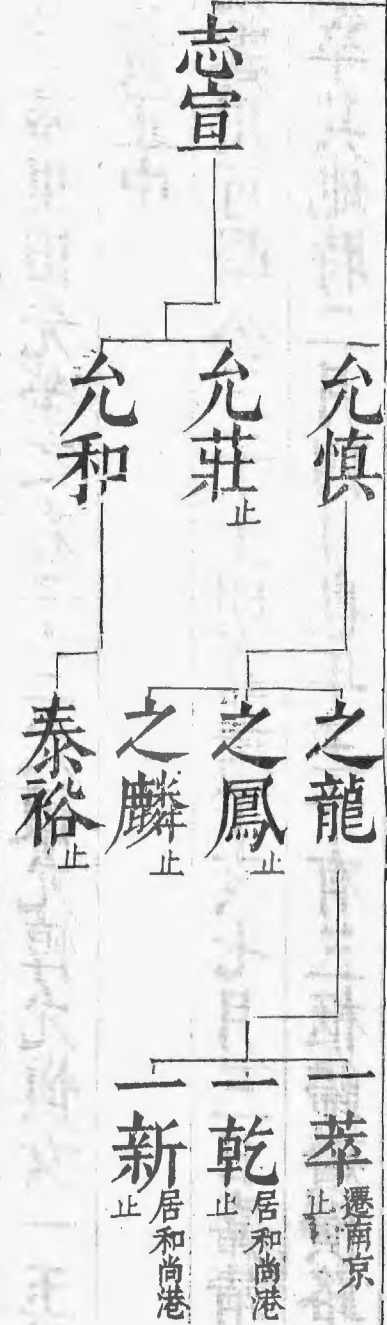 志宣
允慎
允莊 止
允和
之龍
之鳳 止
之麟 止
泰裕 止
一萃 遷南京 止
一乾 居和尚港 止
一新 居和尚港 止